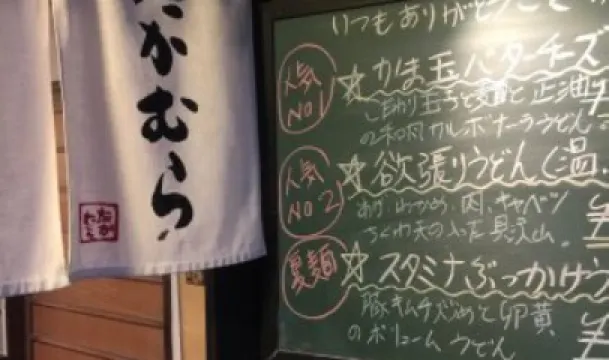 かむら
いつもありがとうご
人気
NO1
☆かま玉バターチーズ
玉子と麺と正油
の和風カルボナーラうどん。
人気
NO2
☆欲張りうどん(温.
あげ、わかめ、肉、キャベツ
ちくわ天の入った具沢山。
夏麺
☆スタミナぶっかけう
豚キムチ と卵黄
のボリュームうどん